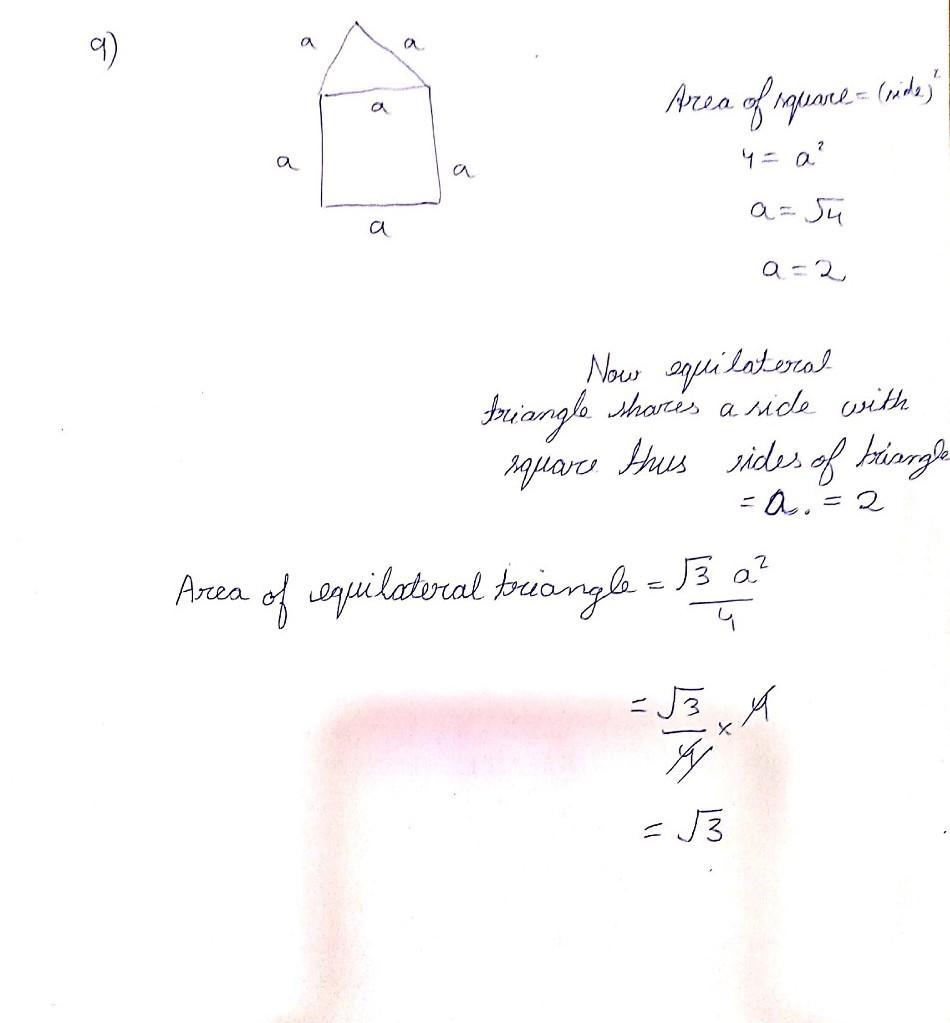 9)
a a
a
a a
a
Area of square = (side)²
4 = a²
a = √4
a = 2
Now equilateral
triangle shares a side with
square thus sides of triangle
= a. = 2
Area of equilateral triangle = √3 a²
4
= √3 × 4
4
= √3